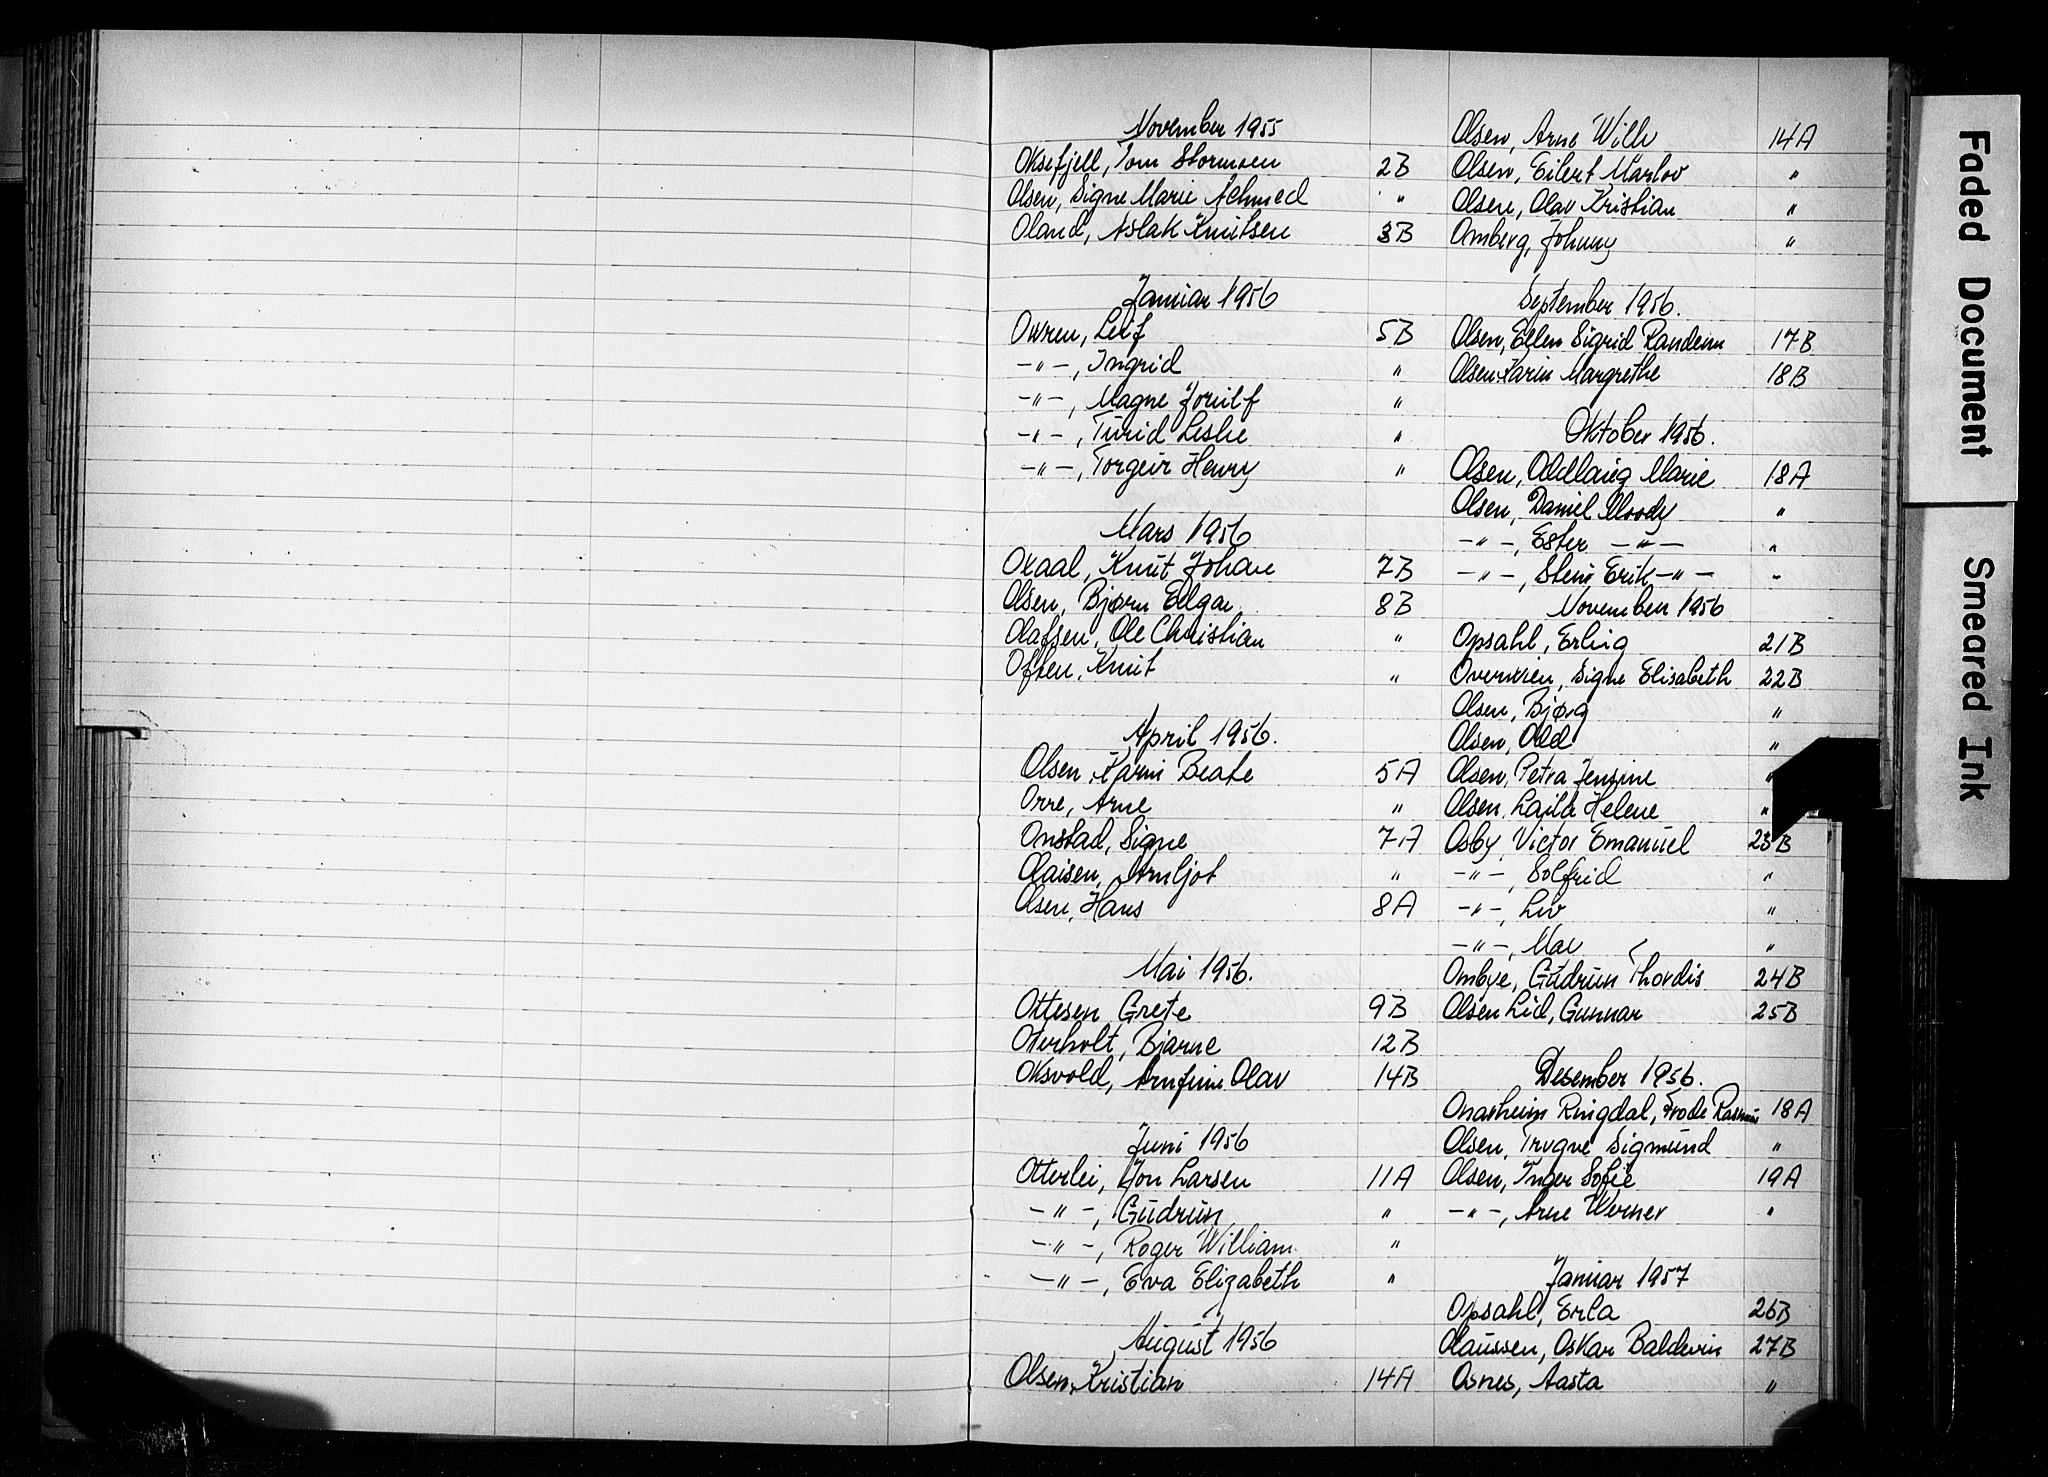 November 1955
Oksefjell, Tom Stormoen 2B
Olsen, Signe Marie Schmed "
Oland, Aslak Knutsen 3B
Januar 1956
Owren, Leif 5B
-"-, Ingrid "
-"-, Magne Jorulf "
-"-, Turid Leslie "
-"-, Torgeir Henry "
Mars 1956
Okaal, Knut Johan 7B
Olsen, Bjørn Edgar 8B
Olafsen, Ole Christian "
Often, Knut "
April 1956.
Olsen, Karin Beate 5A
Orre, Arne "
Onstad, Signe 7A
Olaisen, Arnljot "
Olsen, Hans 8A
Mai 1956.
Ottesen Grete 9B
Oterholt, Bjarne 12B
Oksvold, Arnfinn Olav 14B
Juni 1956
Otterlei, Jon Larsen 11A
-"-, Gudrun "
-"-, Roger William "
-"-, Eva Elizabeth "
August 1956
Olsen, Kristian 14A
Olsen, Arne Wilh 14A
Olsen, Eilert Marlov "
Olsen, Olav Kristian "
Omberg, Johnny "
September 1956.
Olsen, Ellen Sigrid Randem 17B
Olsen, Karin Margrethe 18B
Oktober 1956.
Olsen, Oddlaug Marie 18A
Olsen, Daniel Moody "
-"-, Ester -"- "
-"-, Stein Erik -"- "
November 1956
Opsahl, Erling 21B
Overvien, Signe Elisabeth 22B
Olsen, Bjørg "
Olsen, Odd "
Olsen, Petra Jensine "
Olsen, Laila Helene "
Osby, Victor Emanuel 23B
-"-, Solfrid "
-"-, Liv "
-"-, Mai "
Ombye, Gudrun Thordis 24B
Olsen Lid, Gunnar 25B
Desember 1956.
Onarheim Ringdal, Frode Rasmus 18A
Olsen, Trygve Sigmund "
Olsen, Inger Sofie 19A
-"-, Arne Werner "
Januar 1957
Opsahl, Erla 26B
Olaussen, Oskar Baldwin 27B
Osnes, Aasta "
Faded Document
Smeared Ink